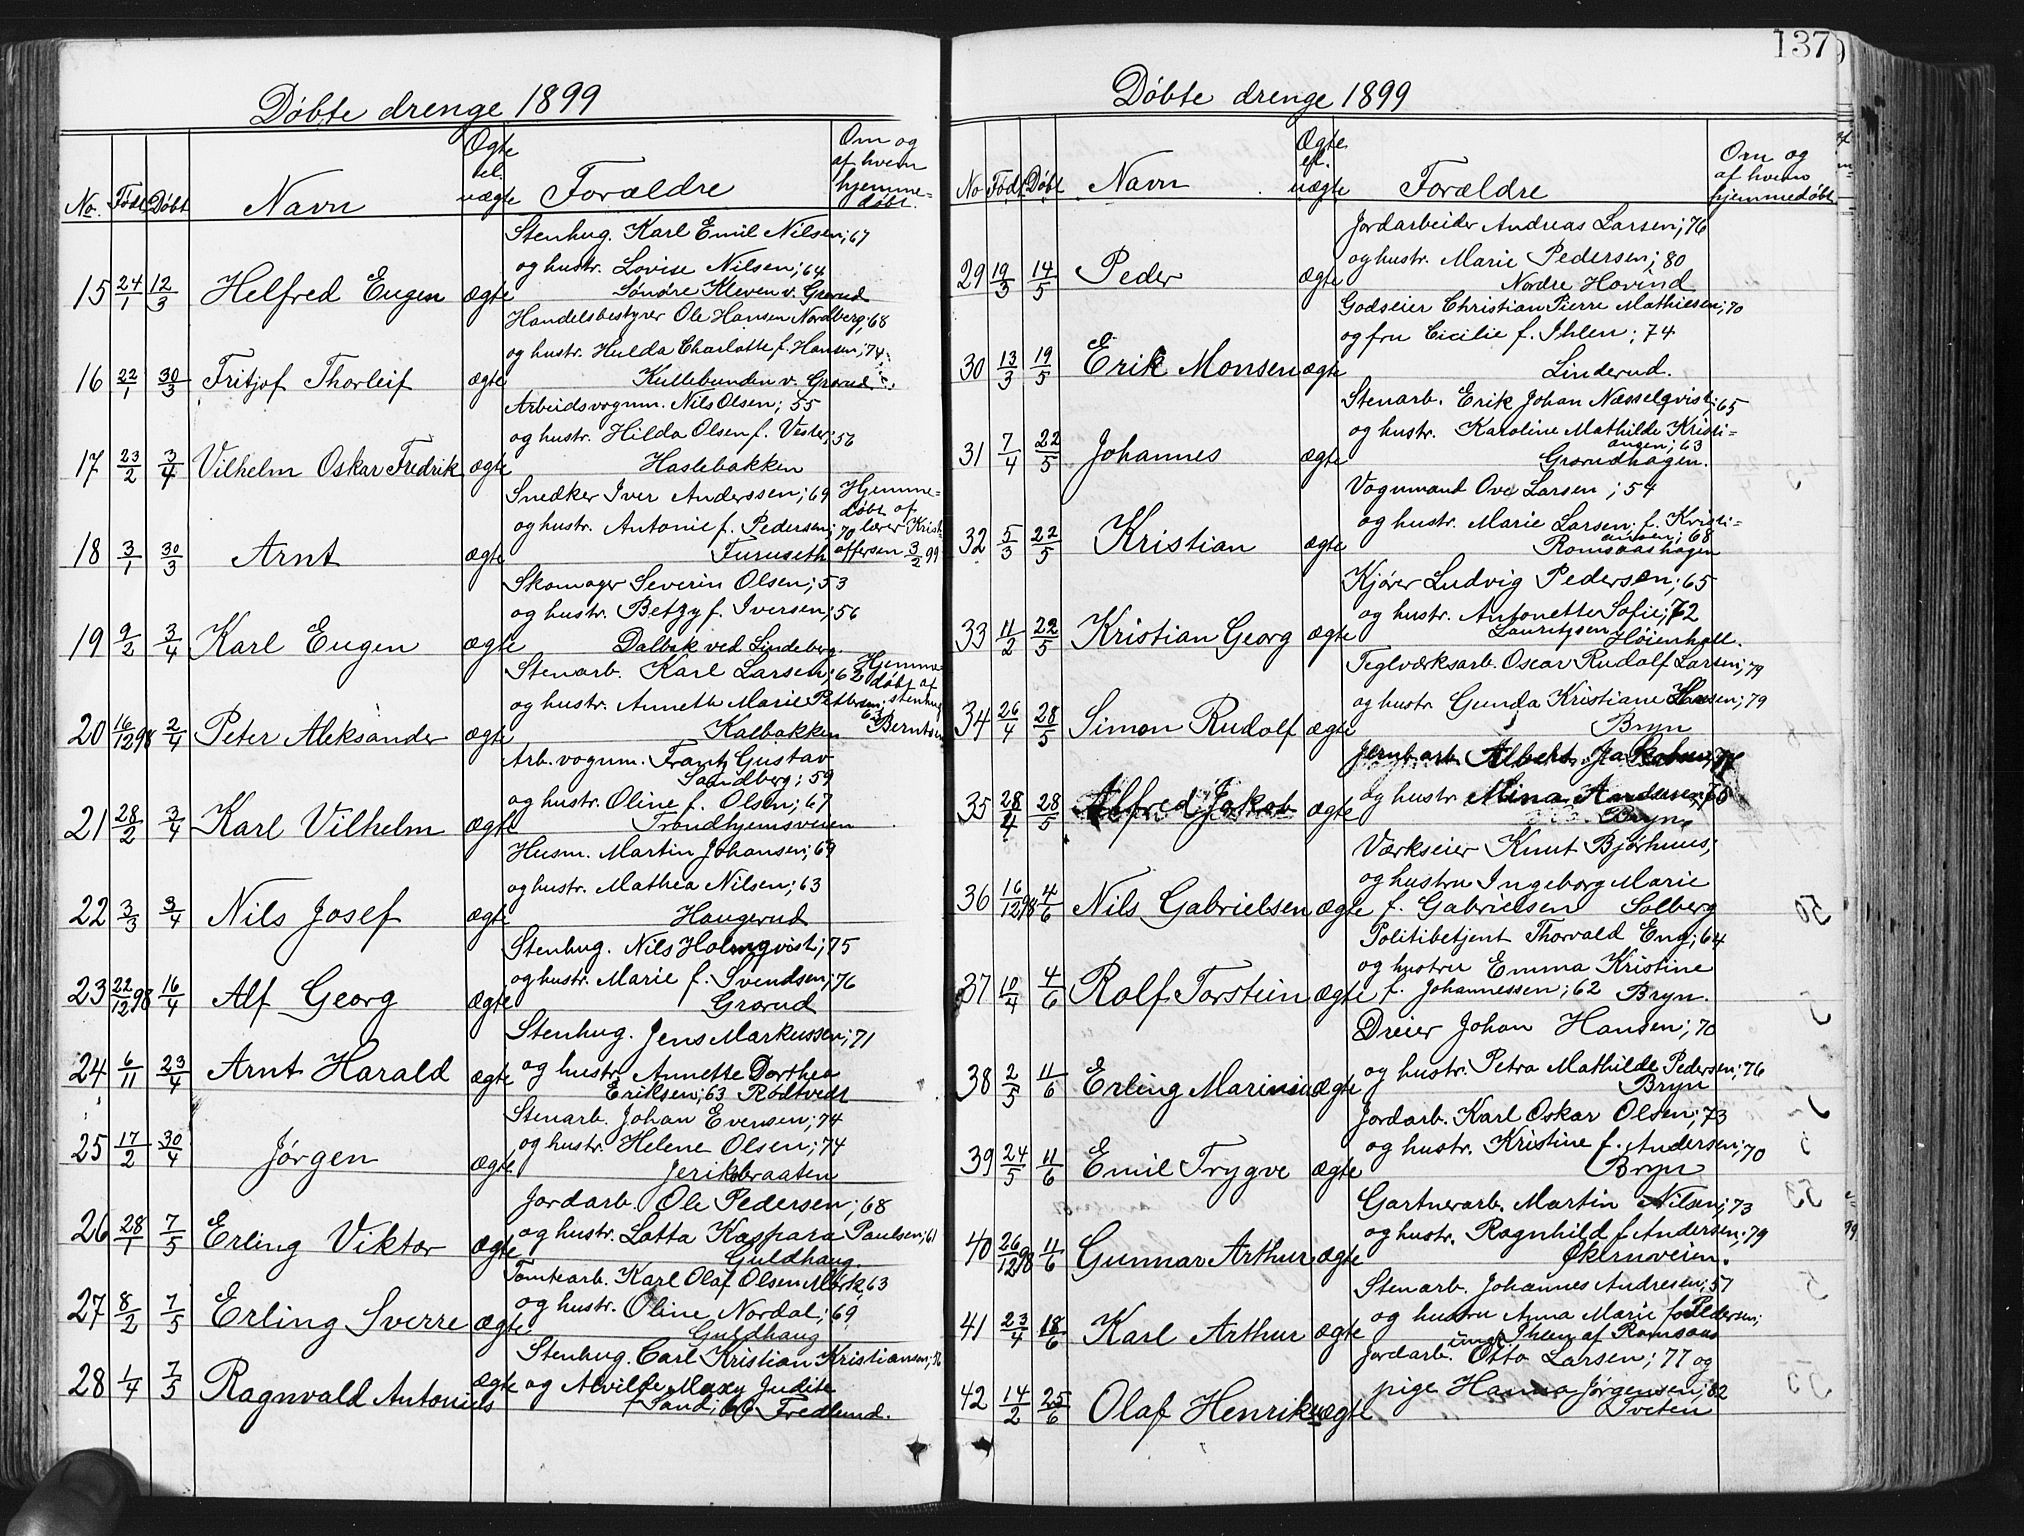 Døbte drenge 1899
No. Født Døbt Navn Ægte el. uægte Forældre Om og af hvem hjemme=døbt.
Stenhug. Karl Emil Nilsen; 67
og hustr. Lovise Nilsen; 64
15 24/1 12/3 Helfred Eugen ægte Søndre Kleven v. Grorud
Handelsbestyrer Ole Hansen Nordberg; 68
og hustr. Hulda Charlotte f. Hansen; 74
16 22/1 30/3 Fritjof Thorleif ægte Kullebunden v. Grorud
Arbeidsvognm. Nils Olsen; 55
og hustr. Hilda Olsen f. Vester; 56
17 23/2 3/4 Vilhelm Oskar Fredrik ægte Haslebakken
Snedker Iver Anderssen; 69 Hjemme=
og hustr. Antonie f. Pedersen; 70 døbt af lærer Krist=
18 3/1 30/3 Arnt ægte Furuseth offersen 3/2 99
Skomager Severin Olsen; 53
og hustr. Betzy f. Iversen; 56
19 9/2 3/4 Karl Eugen ægte Dalbak ved Lindeberg.
Stenarb. Karl Larsen; 62 Hjemme=
og hustr. Annette Marie Pettersen; 63 døbt af stenhug
20 16/12 98 2/4 Peter Aleksander ægte Kalbakken Berntsen
Arb. vognm. Frantz Gustav
Sandberg; 59
og hustr. Oline f. Olsen; 67
21 28/2 3/4 Karl Vilhelm ægte Trondhjemsveien
Husm. Martin Johansen; 69
og hustr. Mathea Nilsen; 63
22 3/3 3/4 Nils Josef ægte Haugerud
Stenhug. Nils Holmqvist; 75
og hustr. Marie f. Svendsen; 76
23 22/12 98 16/4 Alf Georg ægte Grorud
Stenhug. Jens Markussen; 71
24 6/11 23/4 Arnt Harald ægte og hustr. Annette Dorthea
Eriksen; 63 Rødtvedt
Stenarb. Johan Evensen; 74
25 17/2 30/4 Jørgen ægte og hustr. Helene Olsen; 74
Jerikobraaten
Jordarb. Ole Pedersen; 68
26 28/1 7/5 Erling Viktor ægte og hustr. Lotta Kaspara Paulsen; 61
Guldhaug.
Tomtearb. Karl Olaf Olsen Mørk; 63
27 8/2 7/5 Erling Sverre ægte og hustr. Oline Nordal; 69
Guldhaug
Stenhug. Carl Kristian Kristiansen;
28 1/4 7/5 Ragnvald Antonius ægte og Alvilde Maxy Judite
f. Sand; 66 Fredlund.
137
Døbte drenge 1899
No Født Døbt Navn Ægte el. uægte Forældre Om og af hvem hjemmedøbt
Jordarbeider Andreas Larsen; 76
og hustr. Marie Pedersen; 80
29 19/3 14/5 Peder ægte Nordre Hovind
Godseier Christian Pierre Mathiesen; 70
og fru Cicilie f. Ihlen; 74
30 13/3 19/5 Erik Monsen ægte Linderud.
Stenarb. Erik Johan Næsselqvist; 65
og hustr. Karoline Mathilde Kristi=
ansen; 63
31 7/4 22/5 Johannes ægte Grorudhagen.
Vognmand Ove Larsen; 54
og hustr. Marie Larsen. f. Kristi=
ansen; 68
32 5/3 22/5 Kristian ægte Romsaashagen
Kjører Ludvig Pedersen; 65
og hustr. Antonette Sofie; 72
33 11/2 22/5 Kristian Georg ægte Lauritzsen Høienhall.
Teglværksarb. Oscar Rudolf Larsen; 79
og hustr Gunda Kristiane Hansen; 79
34 26/4 28/5 Simon Rudolf ægte Bryn
Jernb arb Albert Jakobsen;
35 28/4 28/5 Alfred Jakob ægte og hustr Mina Andersen; 70
Bryn
Værkseier Knut Bjørhuus;
og hustru Ingeborg Marie
36 16/12 98 4/6 Nils Gabrielsen ægte f. Gabrielsen Solberg
Politibetjent Thorvald Eng; 64
og hustru Emma Kristine
37 10/4 4/6 Rolf Torstein ægte f. Johannessen; 62 Bryn.
Dreier Johan Hansen; 70
38 2/5 11/6 Erling Marinius ægte og hustr. Petra Mathilde Pedersen; 76
Bryn
Jordarb. Karl Oskar Olsen; 73
39 24/5 11/6 Emil Trygve ægte og hustr. Kristine f. Andersen; 70
Bryn
Gartnerarb. Martin Nilsen; 73
40 26/12 98 11/6 Gunnar Arthur ægte og hustr. Ragnhild f Andersen; 79
Økernveien.
Stenarb. Johannes Andresen; 57
41 23/4 18/6 Karl Arthur ægte og hustru Anna Marie f. Pedersen;
Ihlen af Romsaas
Jordarb. ungk. Otto Larsen; 77 og
42 14/2 25/6 Olaf Henrik uægte pige Hanna Jørgensen; 82
Tveten